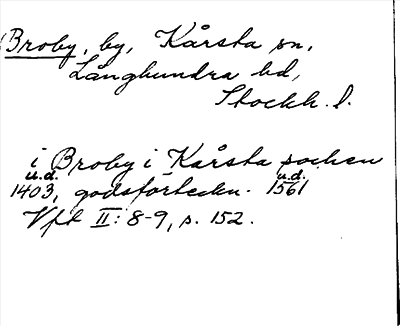 Broby, by, Kårsta sn,
Långhundra hd,
Stockh. l.
i Broby i Kårsta socken
u.d. u.d.
1403, godsförteckn. 1561
Vft II: 8-9, s. 152.